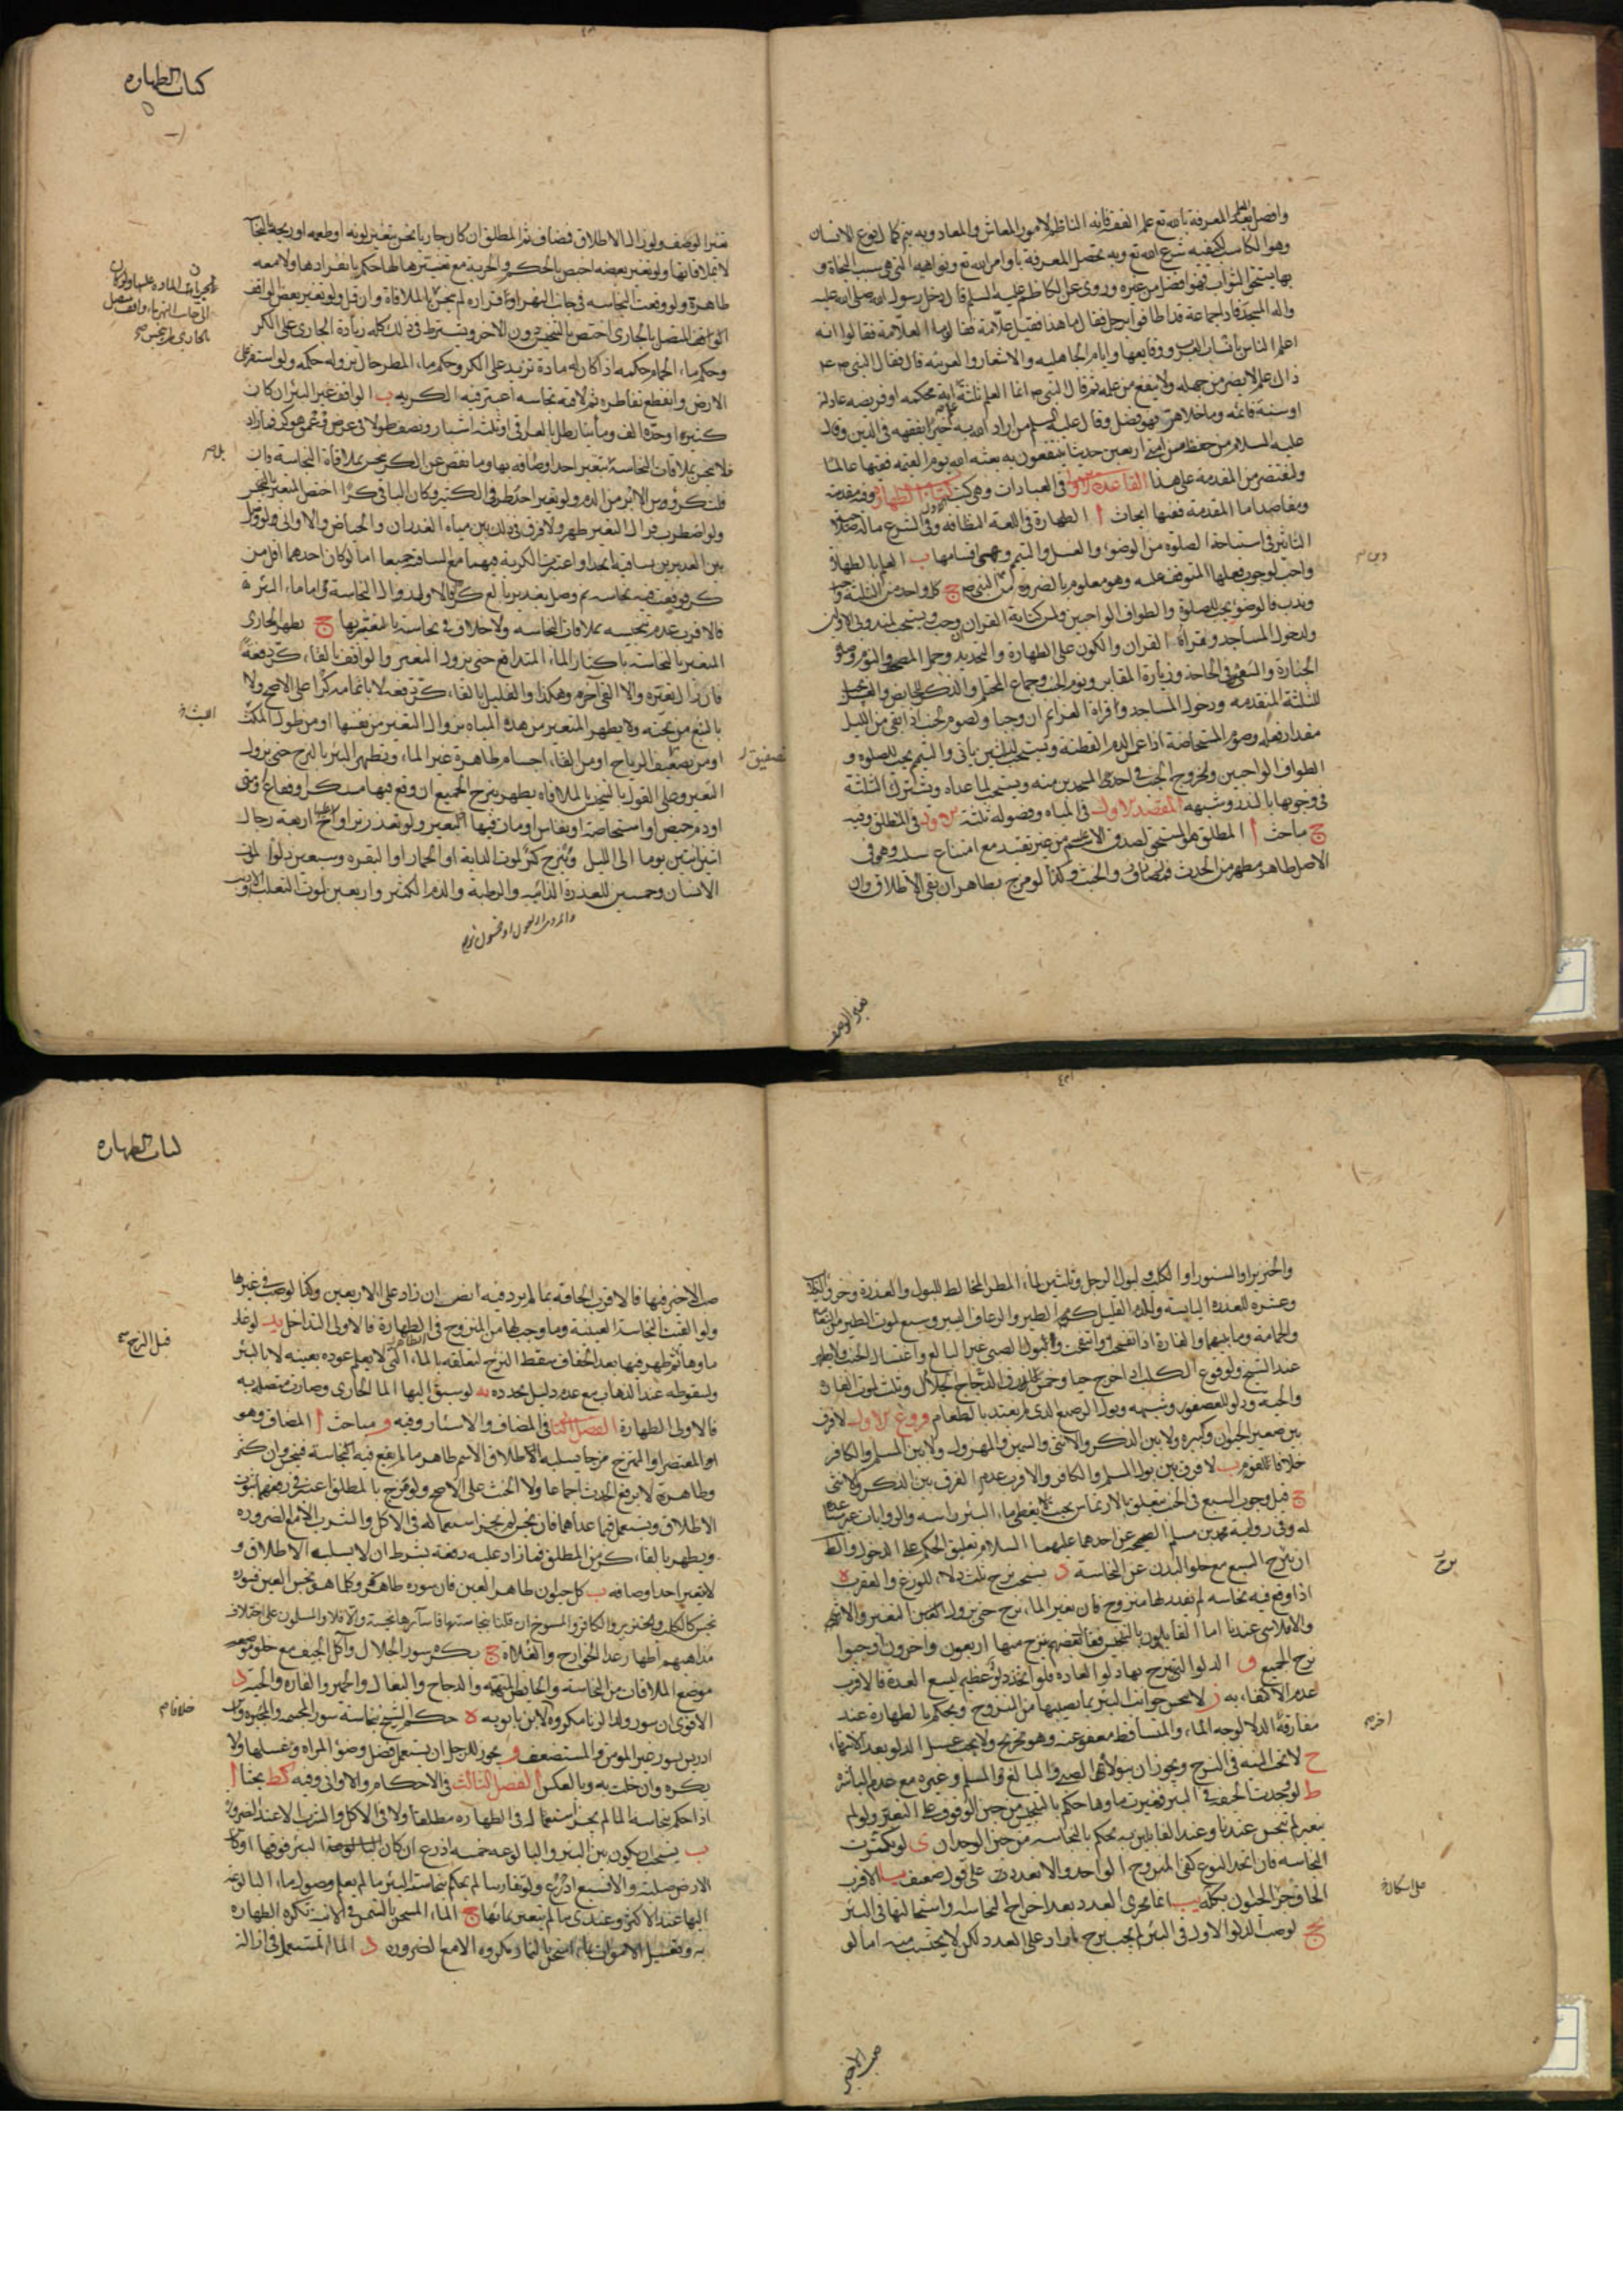 وافضل العلم بعد المعرفة بالله تع علم الفقه فانه الناظم لامور المعاش والمعاد وبه يتم كمال نوع الانسان
وهو الكاسب لكيفيه شرع الله تع وبه تحصل المعرفة باوامر الله تع ونواهيه التي هي سبب النجاة و
بها يستحق الثواب فهو افضل من غيره وروى عن الكاظم عليه السلم قال دخل رسول الله صلى الله عليه
واله المسجد فاذا جماعة قد اطافوا برجل فقال ما هذا فقيل علامة فقال وما العلامة فقالوا انه
اعلم الناس بانساب العرب ووقايعها وايام الجاهلية والاشعار والعربية قال فقال النبي ص
ذاك علم لا يضر من جهله ولا ينفع من علمه ثم قال النبي ص انما العلم ثلثة اية محكمه او فريضه عادلة
اوسنة قائمه وما خلاهن فهو فضل وقال عليه السلم من اراد الله به خيرا يفقهه في الدين وقال
عليه السلام من حفظ من امتى اربعين حديثا ينتفعون به بعثه الله يوم القيمه فقيها عالما
ولنقتصر من المقدمة على هذا القاعدة الاولى في العبادات وهي كتب كتاب الطهارة وفيه مقدمة
ومقاصد اما المقدمة ففيها ابحاث ا الطهارة في اللغة النظافه وفي الشرع ما له صلاحية
التاثير في استباحة الصلوة من الوضوء والغسل والتيمم وهى اقسامها ب العلم بالطهارة
واجب لوجوب فعلها المتوقف عليه وهو معلوم بالضرورة من دين النبي ص ج كل واحد من الثلثة واجب
وندب فالوضوء يجب للصلوة والطواف الواجبين ولمس كتابة القران ان وجب ويستحب لمندوبى الاولين
ولدخول المساجد وقراءة القران والكون على الطهارة والتجديد وحمل المصحف والنوم وصلوة
الجنازة والسعى في الحاجة وزيارة المقابر ونوم الجنب وجماع المحتلم والذكر للحايض والغسل يجب
للثلثة المتقدمه ودخول المساجد وقراءة العزايم ان وجبا ولصوم الجنب اذا بقي من الليل
مقدار فعله وصوم المستحاضة اذا غمس الدم القطنة ويستحب لما ياتى والتيمم يجب للصلوة و
الطواف الواجبين ولخروج الجنب في احد المسجدين منه ويستحب لما عداه وتشترك الثلثة
في وجوبها بالنذر وشبهه المقصد الاول في المياه وفصوله ثلثة الاول في المطلق وفيه
ج مباحث ا المطلق هو المستحق لصدق الاسم من غير تقييد مع امتناع سلبه وهو في
الاصل طاهر مطهر من الحدث والخبث وكذا لو مزج بطاهر ان بقى الاطلاق وان
تغير الوصف
كتاب الطهاره
تغير الوصف ولو زال الاطلاق فمضاف ثم المطلق ان كان جاريا نجس بتغير لونه او طعمه او ريحه بالنجاسة
لا بملاقاتها ولو تغير بعضه اختص بالحكم والجرية مع تغيرها لها حكم بانفرادها ولا معه
طاهرة ولو وقعت النجاسه في جانب النهر او قراره لم ينجس بالملاقاة وان قل ولو تغير بعض الواقف
المتصل بالجارى اختص بالتنجيس دون الاخر ويشترط في ذلك كله زيادة الجارى على الكر
وحكم ماء الحمام حكمه اذا كان له مادة تزيد على الكر وحكم ماء المطر حال نزوله حكمه ولو استقر على
الارض وانقطع تقاطره ثم لاقته نجاسه اعتبر فيه الكريه ب الواقف غير البئر ان كان
كثيرا وحده الف ومائتا رطل بالعراقى او ثلثة اشبار ونصف طولا في عرض في عمق هو كر فما زاد
فلا ينجس بملاقات النجاسة بل بتغير احد اوصافه بها وما نقص عن الكر ينجس بملاقاة النجاسة وان
قلت كرؤوس الابر من الدم ولو تغير احد طرفى الكثير وكان الباقى كرا اختص المتغير بالتنجيس
ولو اضطرب فزال التغير طهر ولا فرق في ذلك بين مياه الغدران والحياض والاوانى ولو وصل
بين الغديرين بساقية اتحدا واعتبرت الكرية فيهما مع الساقيه جميعا اما لو كان احدهما اقل من
كر فوقعت فيه نجاسه ثم وصل بغدير بالغ كر فالاولى زوال النجاسة واما ماء البئر
فالاقرب عدم تنجيسه بملاقات النجاسه ولا خلاف في نجاسته بالتغير بها ج يطهر الجارى
المتغير بالنجاسة باكثار الماء المتدافع حتى يزول التغير والواقف بالقاء كر دفعة
فان زال تغيره والا القى اخر وهكذا والقليل بالقاء كر دفعة لا باتمامه كرا على الاصح ولا
بالنبع من تحته ولا يطهر المتغير من هذه المياه بزوال التغير من نفسها او من طول المكث
او من تصفيق الرياح او من القاء اجسام طاهرة غير الماء وتطهر البئر بالنزح حتى يزول
التغير وعلى القول بالتنجيس بالملاقاه يطهر بنزح الجميع ان وقع فيها مسكر او فقاع او منى
او دم حيض او استحاضة او نفاس او مات فيها البعير ولو تعذر تراوح عليها اربعة رجال
اثنين اثنين يوما الى الليل وبنزح كر لموت الدابة او الحمار او البقره وسبعين دلوا لموت
الانسان وخمسين للعذرة الذائبه والرطبة والدم الكثير واربعين لموت الثعلب والارنب
تصفيق
والخنزير او السنور او الكلب ولبول الرجل وثلثين لماء المطر المخالط للبول والعذرة وخرؤ الكلاب
وعشره للعذرة اليابسة والدم القليل كدم الطير والرعاف اليسير وسبع لموت الطير من النعامة
والحمامة وما بينهما والفارة اذا تفسخت وانتفخت ولبول الصبى غير البالغ واغتسال الجنب ولا يطهر
عند الشيخ ولوقوع الكلب اذا خرج حيا وخمس لذرق الدجاج الجلال وثلث لموت الفارة
والحية ودلو للعصفور وشبهه وبول الرضيع الذى لم يغتذ بالطعام فروع الاول لا فرق
بين صغير الحيوان وكبيره ولا بين الذكر والانثى والسمين والمهزول ولا بين المسلم والكافر
خلافا لقوم ب لا فرق بين بول المسلم والكافر والاقرب عدم الفرق بين الذكر والانثى
ج قيل وجوب السبع في الجنب متعلق بالارتماس بحيث يغطى ماء البئر راسه والروايات غير مساعدة
له وفى رواية محمد بن مسلم الصحيح عن احدهما عليهما السلام تعليق الحكم على الدخول والظاهر
ان نزح السبع مع خلو البدن عن النجاسة د يستحب نزح ثلث دلاء للوزغ والعقرب ه
اذا وقع فيه نجاسه لم يقدر لها منزوح فان تغير الماء نزح حتى يزول التغير
والا فلا شى عندنا اما القايلون بالتنجيس فقال بعضهم ينزح منها اربعون واخرون اوجبوا
نزح الجميع و الدلو التى ينزح بها دلو العاده فلو اتخذ دلو عظيم يسع العدة فالاقرب
عدم الاكتفاء به ز لا ينجس جوانب البئر بما يصيبها من النزوح ويحكم بالطهارة عند
مفارقة الدلا لوجه الماء والمتساقط معفو عنه ولا يجب غسل الدلو بعد الانتهاء
ح لا تجب النيه في النزح ويجوز ان يتولاه الصبى والبالغ والمسلم وغيره مع عدم المباشرة
ط لو وجدت الجيفة في البئر وتغيرت ماؤها حكم بالتنجيس من حين الوقوف على التغير ولو لم
يتغير لم ينجس عندنا وعند القايلين به يحكم بالنجاسه من حين الوجدان ى لو تكثرت
النجاسه فان اتحد النوع كفى المنزوح الواحد والا تعدد على قول ضعيف يا الاقرب
الحاق جزء الحيوان بكله يب انما يجرى العدد بعد اخراج النجاسه واستحالتها في البئر
يج لو صب الدلو الاول في البئر لم يجب نزح ما زاد على العدد لكن لا يحتسب منه اما لو
صب الاخير
كتاب الطهاره
صب الاخير فيها فالاقرب الحاقه بما لم يرد فيه نص ان زاد على الاربعين وكذا لو صب في غيرها
ولو القيت النجاسة العينية وما وجب لها من المنزوح في الطاهرة فالاولى التداخل يد لو غار
ماوها ثم ظهر فيها بعد الجفاف سقط النزح لتعلقه بالماء الذى لا يعلم عوده بعينه لا بالبئر
ولسقوطه عند الذهاب مع عدم دليل مجدده يه لو سيق اليها الماء الجارى وصارت متصلة به
فالاولى الطهارة الفصل الثانى في المضاف والاسئار وفيه و مباحث ا المضاف وهو
المعتصر او الممتزج مزجا يسلبه الاطلاق الاسم طاهر ما لم يقع فيه نجاسة فينجس وان كثر
وطاهره لا يرفع الحدث اجماعا ولا الخبث على الاصح ولو مزج بالمطلق اعتبر في رفعهما ثبوت
الاطلاق ويستعمل فيما عداهما فان نجس لم يجز استعماله في الاكل والشرب الا مع الضروره
ويطهر بالقاء كر من المطلق فما زاد عليه دفعة بشرط ان لا يسلبه الاطلاق و
لا يتغير احد اوصافه ب كل حيوان طاهر العين فان سوره طاهر وكلما هو نجس العين فسوره
نجس كالكلب والخنزير والكافر والمسوخ ان قلنا بنجاستها فاسآرها نجسة والا فلا والمسلمون على اختلاف
مذاهبهم اطهار عدا الخوارج والغلاة ج يكره سور الجلال وآكل الجيف مع خلو
موضع الملاقات من النجاسة والحايض المتهمة والدجاج والبغال والحمير والفاره والحية د
الاقوى ان سور ولد الزنا مكروه لابن بابويه ه حكم الشيخ بنجاسة سور المجسمه والمجبره وابن
ادريس سور غير المومن والمستضعف و يجوز للرجل ان يستعمل فضل وضوء المراه وغسلها ولا
يكره وان خلت به وبالعكس الفصل الثالث في الاحكام والاوانى وفيه كط بحثا ا
اذا حكم بنجاسة الماء لم يجز استعماله في الطهاره مطلقا ولا في الاكل والشرب الا عند الضرورة
ب يستحب ان يكون بين البئر والبالوعه خمسه اذرع ان كان البئر فوقها او كانت
الارض صلبه والا فسبع اذرع ولو تقاربا لم يحكم بنجاسة البئر ما لم يعلم وصول ماء البالوعة
اليها عند الاكثر وعندى ما لم يتغير بمائها ج الماء المسخن بالشمس في الانية تكره الطهاره
به وتغسيل الاموات بماء اسخن بالنار مكروه الا مع الضروره د الماء المستعمل في ازالة
قبل النزح